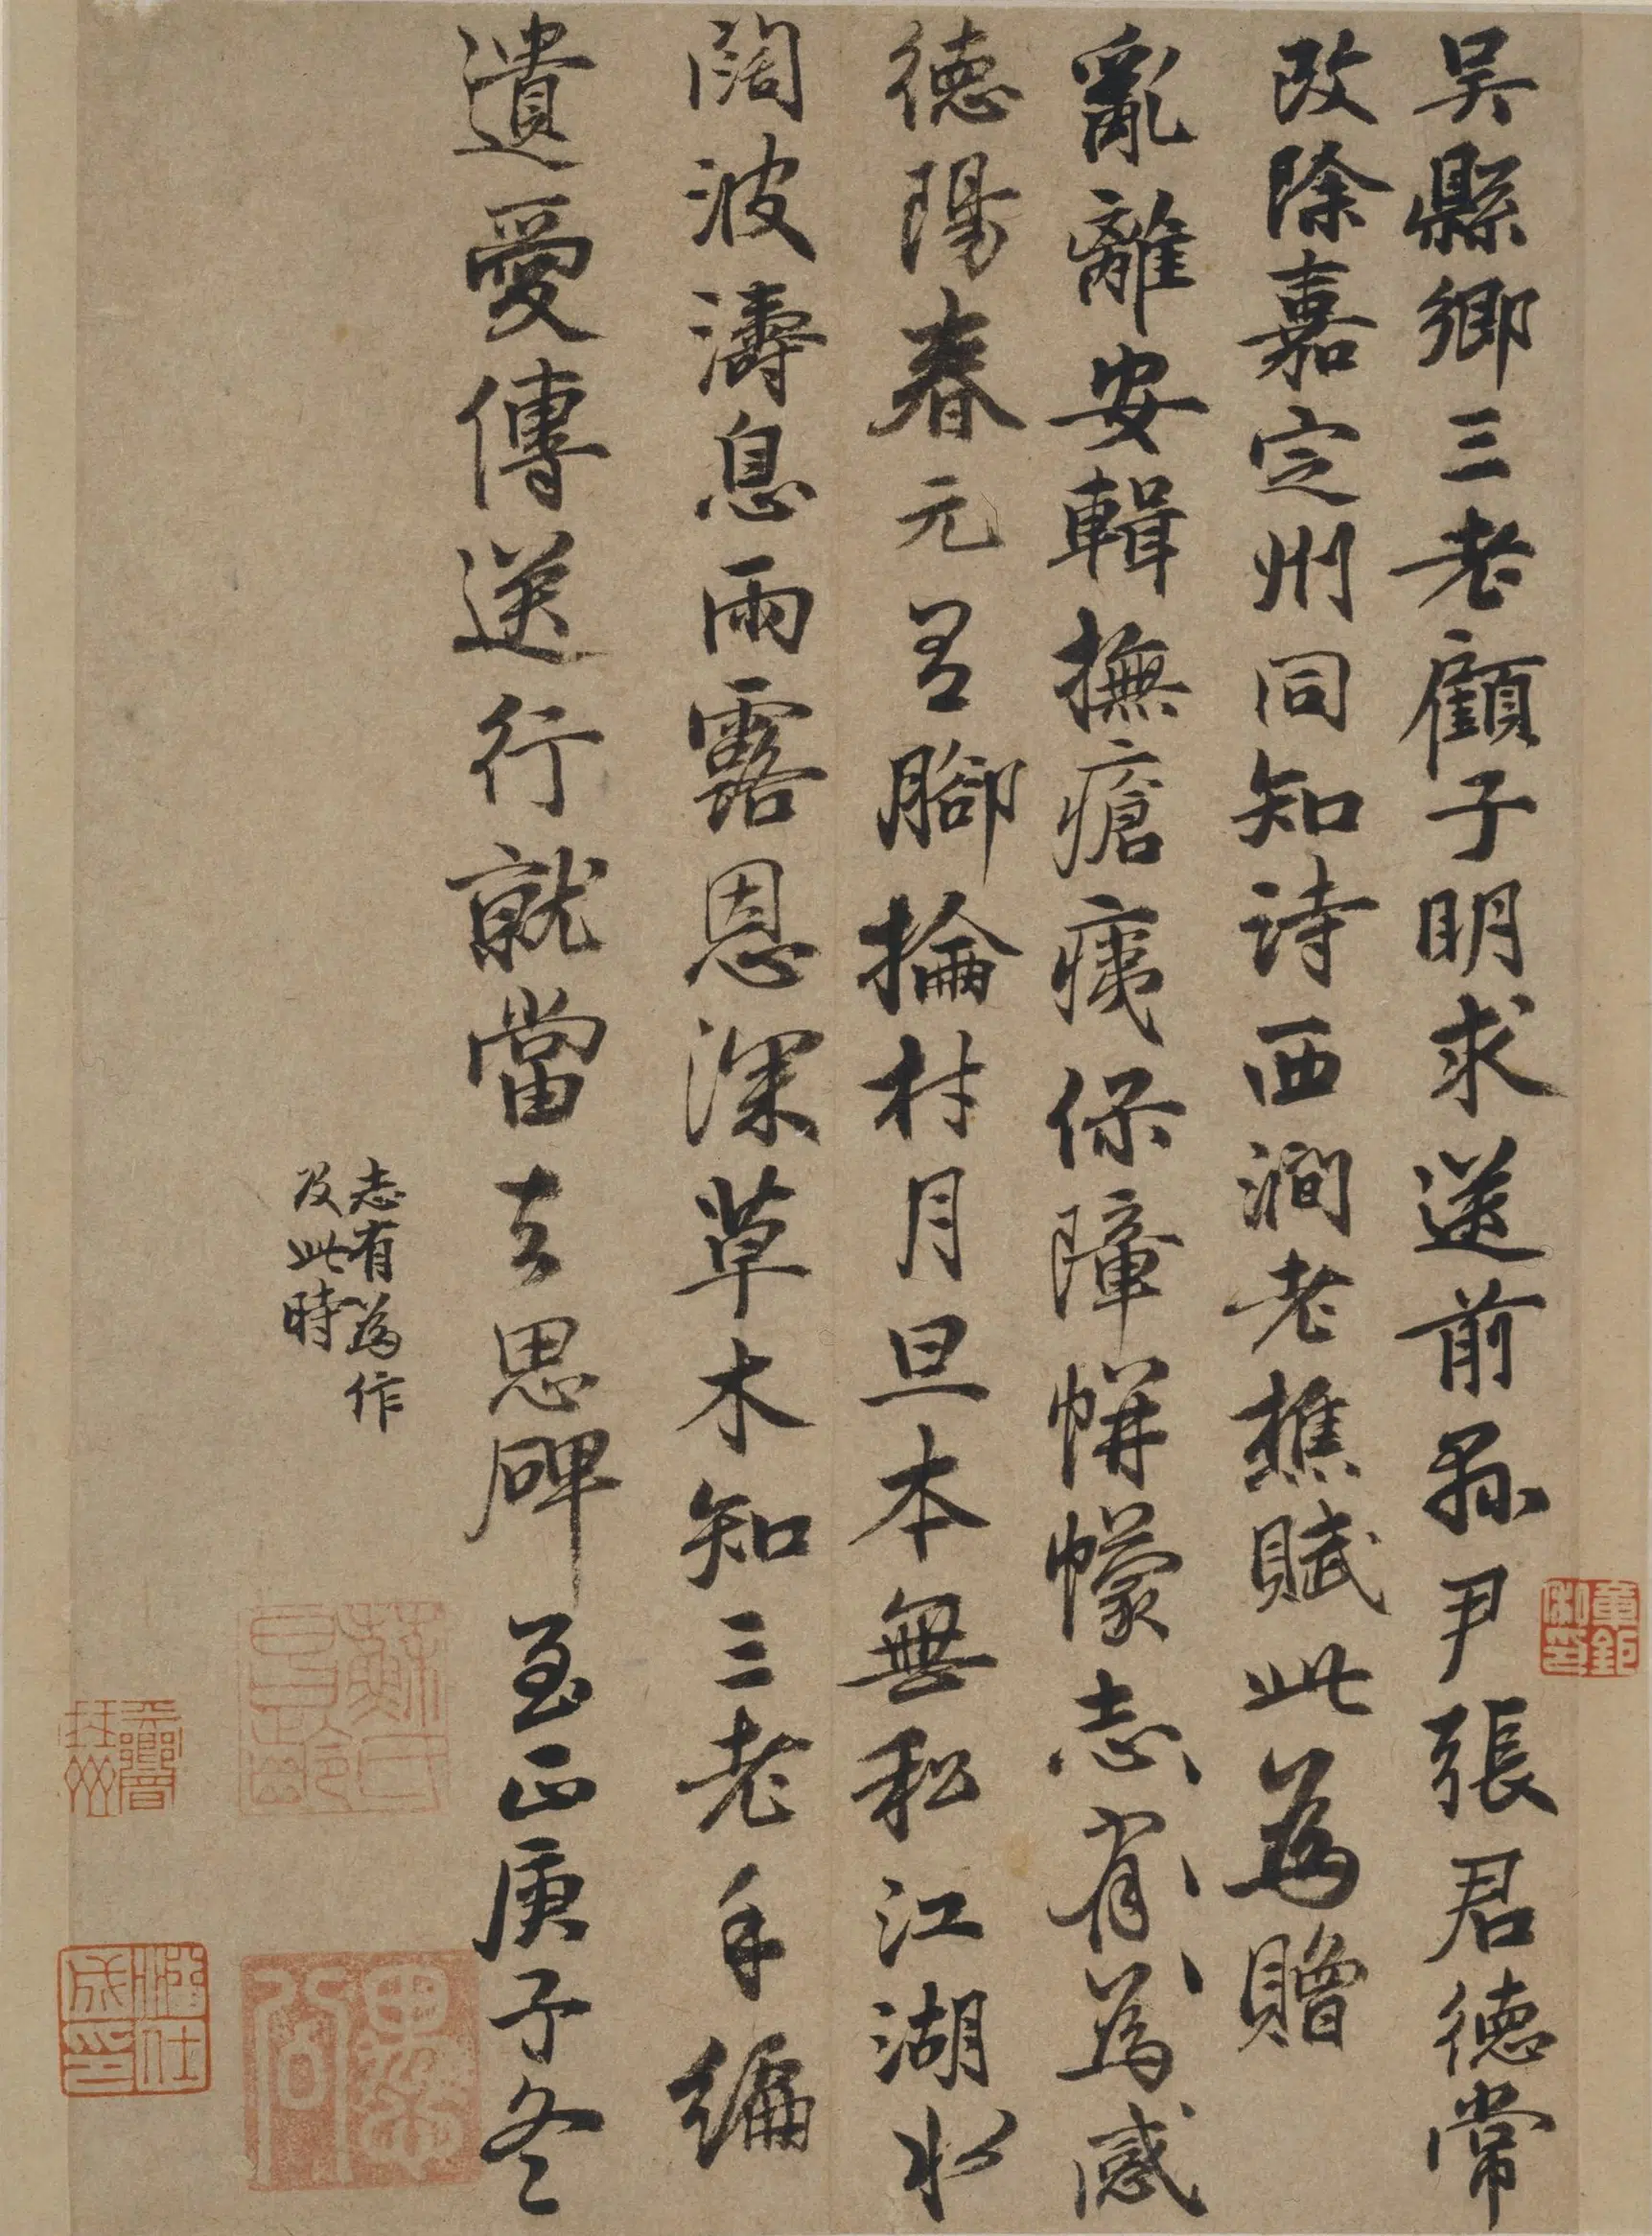 吳縣鄉三老顧子明求送前縣尹張君德常
改除嘉定州同知詩西澗老樵賦此為贈
亂離安輯撫瘡痍保障帡幪志有為感
德陽春元有腳掄材月旦本無私江湖水
闊波濤息雨露恩深草木知三老手編
遺愛傳送行就當去思碑至正庚子冬
志有為作
及此時
蘇氏昌齡